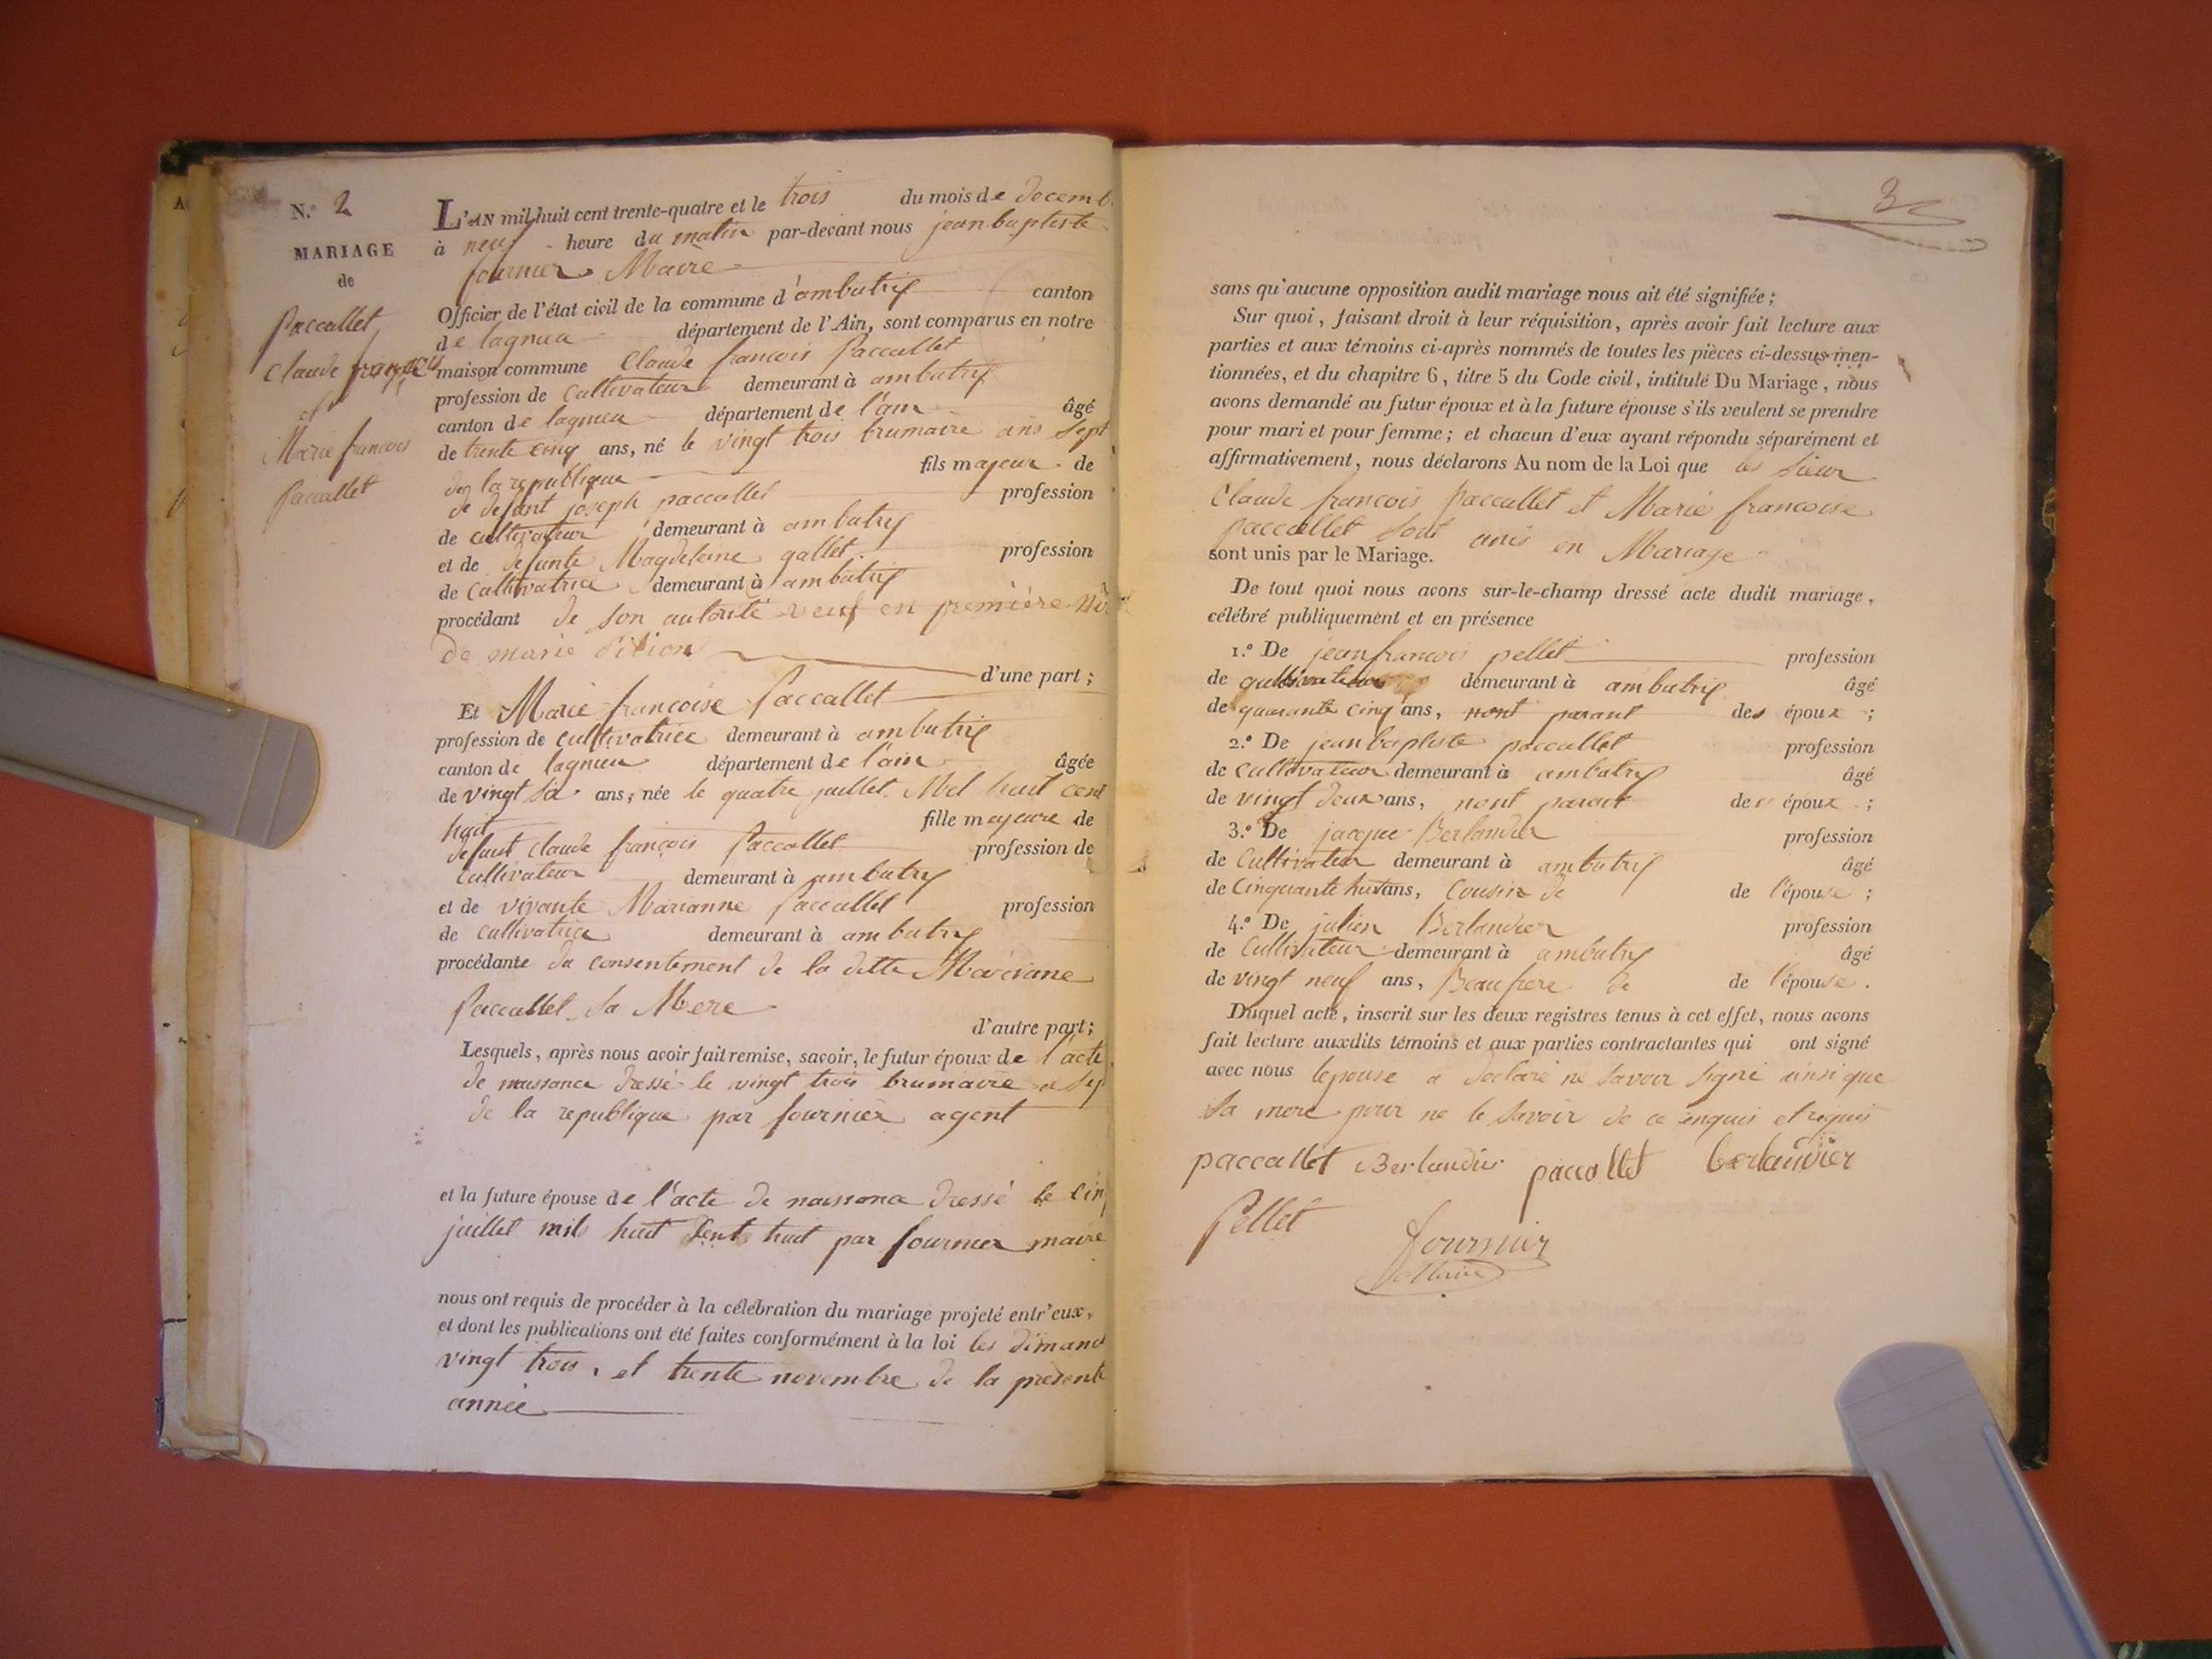 N.º 2
MARIAGE
de
Paccallet
Claude françois
et
Marie francois
Paccallet
L'AN mil huit cent trente-quatre et le trois du mois de decemb
à neuf heure du matin par-devant nous jean baptiste
fournier Maire
Officier de l'état civil de la commune d'ambutrix canton
de lagnieu département de l'Ain, sont comparus en notre
maison commune Claude francois Paccallet
profession de Cultivateur demeurant à ambutrix
canton de lagnieu département de l'ain âgé
de trente cinq ans, né le vingt trois brumaire ans Sept
de la republique fils majeur de
de defunt joseph paccallet profession
de cultivateur demeurant à ambutrix
et de defunte Magdeleine gallet profession
de Cultivatrice demeurant à ambutrix
procédant de son autorité veuf en première
de marie
d'une part ;
Et Marie francoise Paccallet
profession de Cultivatrice demeurant à ambutrix
canton de lagnieu département de l'ain âgée
de vingt six ans, née le quatre juillet Mil huit cent
huit fille majeure de
defunt claude françois Paccallet profession de
Cultivateur demeurant à ambutrix
et de vivante Marianne Paccallet profession
de cultivatrice demeurant à ambutrix
procédante du consentement de la ditte Marianne
Paccallet Sa Mere
d'autre part ;
Lesquels, après nous avoir fait remise, savoir, le futur époux de l'acte
de naissance dressé le vingt trois brumaire a Sep
de la republique par fournier agent
et la future épouse de l'acte de naissance dressé le cin
juillet mil huit Cent huit par fournier maire
nous ont requis de procéder à la célébration du mariage projeté entr'eux,
et dont les publications ont été faites conformément à la loi les dimanc
vingt trois, et trente novembre de la presente
année
3
sans qu'aucune opposition audit mariage nous ait été signifiée ;
Sur quoi, faisant droit à leur réquisition, après avoir fait lecture aux
parties et aux témoins ci-après nommés de toutes les pièces ci-dessus men-
tionnées, et du chapitre 6, titre 5 du Code civil, intitulé Du Mariage, nous
avons demandé au futur époux et à la future épouse s'ils veulent se prendre
pour mari et pour femme ; et chacun d'eux ayant répondu séparément et
affirmativement, nous déclarons Au nom de la Loi que les Sieur
Claude francois Paccallet et Marie francoise
paccallet Sont unis en Mariage
sont unis par le Mariage.
De tout quoi nous avons sur-le-champ dressé acte dudit mariage,
célébré publiquement et en présence
1.º De jean francois pellet profession
de demeurant à ambutrix âgé
de quarante cinq ans, nont parant des époux ;
2.º De jean baptiste paccallet profession
de Cultivateur demeurant à ambutrix âgé
de vingt deux ans, nont parant des époux ;
3.º De jacque Berlandier profession
de Cultivateur demeurant à ambutrix âgé
de Cinquante huit ans, Cousin de de l'épouse ;
4.º De julien Berlandier profession
de Cultivateur demeurant à ambutrix âgé
de vingt neuf ans, Beaufrere de de l'épouse.
Duquel acte, inscrit sur les deux registres tenus à cet effet, nous avons
fait lecture auxdits témoins et aux parties contractantes qui ont signé
avec nous lepouse a declaré ne Savoir Signé ainsi que
Sa mere pour ne le Savoir de ce enquis et requis
paccallet Berlandier paccallet berlandier
Pellet
fournier
Maire